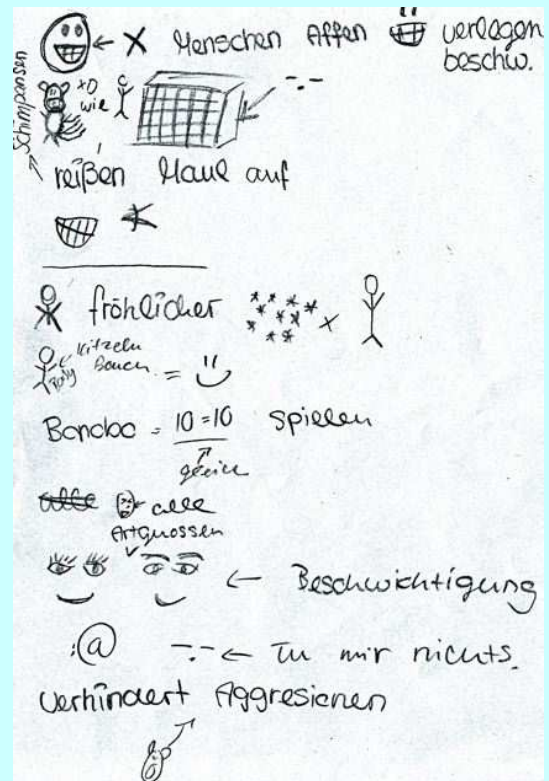 Menschen Affen verlegen
beschw.
Schimpansen
wie
reißen Maul auf
fröhlicher
kitzeln
Bauch =
Bonobo = 10=10 spielen
alle
Artgnossen
← Beschwichtigung
:@ -.- ← Tu mir nichts.
verhindert Aggresionen